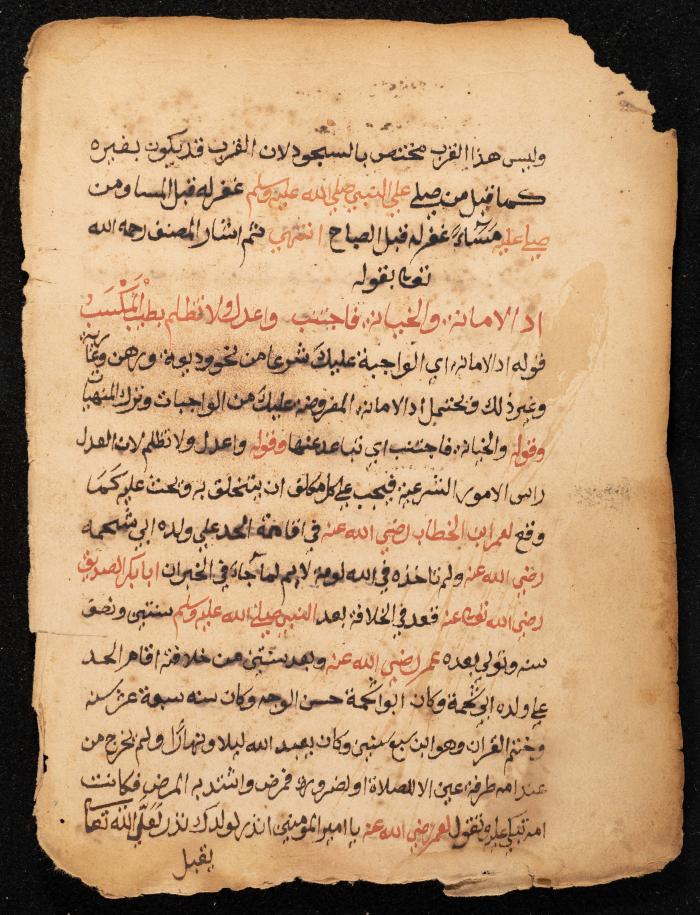 وليس هذا القرب مختص بالسجود لان القرب قد يكون بغيره
كما قيل من صلي علي النبي صلي الله عليه وسلم غفر له قبل المسا ومن
صلي عليه مَسَاءً غفر له قبل الصباح انتهي ثم اشار المصنف رحمه الله
تعالي بقوله
ادالامانة والخيانة فاجتنب واعدل ولا تظلم بطيب المكسب
قوله ادالامانة اي الواجبة عليك شرعا من نحو وديعة ورهن وعارية
وغير ذلك ويحتمل ادالامانة المفروضة عليك من الواجبات وترك المنهيات
وقوله والخيانة فاجتنب اي تباعد عنها وقوله واعدل ولا تظلم لان العدل
راس الامور الشرعية فيجب علي كل مكلف ان يتخلق به ويحث عليه كما
وقع لعمر ابن الخطاب رضي الله عنه في اقامة الحد علي ولده ابي شحمه
رضي الله عنه ولم تاخذه في الله لومة لايم لما جاء في الخبر ان ابا بكر الصديق
رضي الله تعالي عنه قعد في الخلافة بعد النبي صلي الله عليه وسلم سنتين ونصف
سنه وتولي بعده عمر رضي الله عنه وبعد سنتين من خلافته اقام الحد
علي ولده ابي شحمة وكان ابو شحمة حسن الوجه وكان سنه سبعة عشر سنه
وختم القران وهو ابن سبع سنين وكان يعبد الله ليلا ونهارًا ولم يخرج من
عند امه طرفة عين الا للصلاة او لضرورة فمرض واشتد به المرض فكانت
امه تبكي عليه وتقول لعمر رضي الله عنه يا امير المومنين انذر لولدك نذر لَعَلَّ الله تعالي
يقبل